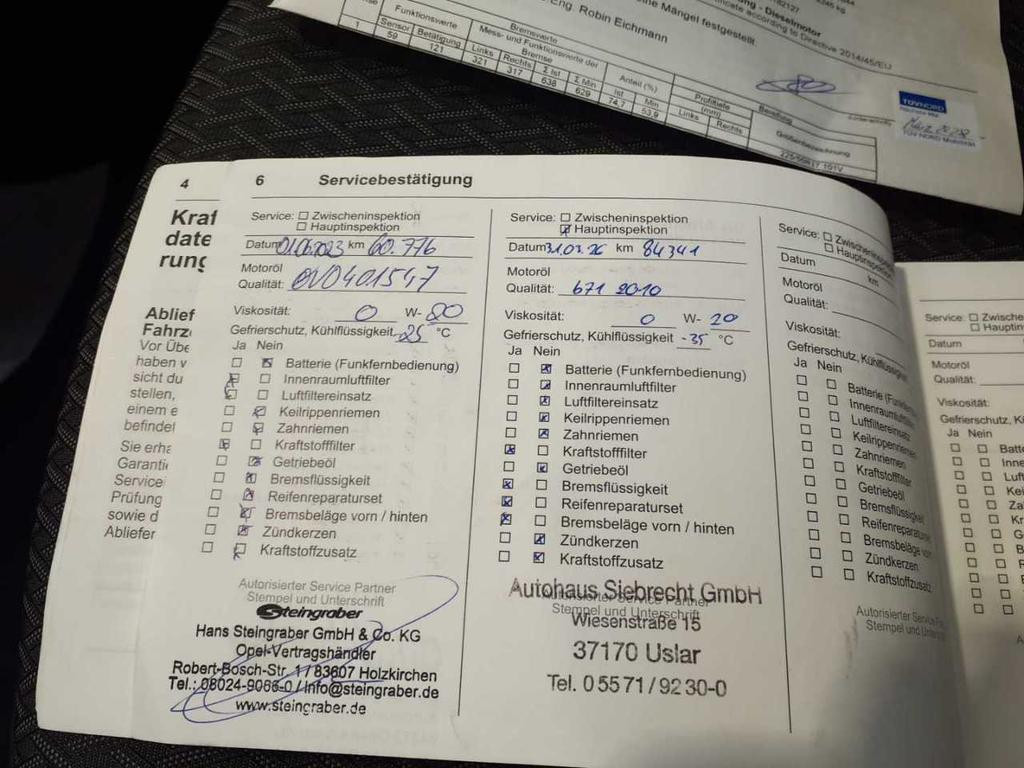 ng - Dieselmotor
cate according to Directive 2014/45/EU
ne Mängel festgestellt.
Eng. Robin Eichmann
Funktionswerte
Bremswerte
Mess- und Funktionswerte der
Bremse
Anteil (%)
Profiltiefe
(mm)
Bereifung
Sensor Betätigung Links Rechts Σ Ist Σ Min Ist Min Links Rechts
Größenbezeichnung
1 59 121 321 317 638 629 74,7 53,9
TÜV NORD
März 2028
TÜV NORD Mobilität
4
Kraf
date
rung
Ablief
Fahrz
Vor Übe
haben v
sicht du
stellen,
einem e
befindet
Sie erha
Garantie
Service
Prüfung
sowie d
Abliefer
6 Servicebestätigung
Service: Zwischeninspektion
Hauptinspektion
Datum 01.06.2023 km 60.776
Motoröl
Qualität: OV0401547
Viskosität: 0 W- 20
Gefrierschutz, Kühlflüssigkeit -25 °C
Ja Nein
Batterie (Funkfernbedienung)
Innenraumluftfilter
Luftfiltereinsatz
Keilrippenriemen
Zahnriemen
Kraftstofffilter
Getriebeöl
Bremsflüssigkeit
Reifenreparaturset
Bremsbeläge vorn / hinten
Zündkerzen
Kraftstoffzusatz
Autorisierter Service Partner
Stempel und Unterschrift
Steingraber
Hans Steingraber GmbH & Co. KG
Opel-Vertragshändler
Robert-Bosch-Str. 1 / 83607 Holzkirchen
Tel.: 08024-9066-0 / info@steingraber.de
www.steingraber.de
Service: Zwischeninspektion
Hauptinspektion
Datum 31.03.26 km 84341
Motoröl
Qualität: 671 2010
Viskosität: 0 W- 20
Gefrierschutz, Kühlflüssigkeit -35 °C
Ja Nein
Batterie (Funkfernbedienung)
Innenraumluftfilter
Luftfiltereinsatz
Keilrippenriemen
Zahnriemen
Kraftstofffilter
Getriebeöl
Bremsflüssigkeit
Reifenreparaturset
Bremsbeläge vorn / hinten
Zündkerzen
Kraftstoffzusatz
Autorisierter Service Partner
Stempel und Unterschrift
Autohaus Siebrecht GmbH
Wiesenstraße 15
37170 Uslar
Tel. 0 55 71 / 92 30-0
Service: Zwischen
Hauptinspektion
Datum km
Motoröl
Qualität:
Viskosität:
Gefrierschutz, Kühlflüssigkeit
Ja Nein
Batterie (Funk
Innenrauml
Luftfiltereins
Keilrippenriem
Zahnriemen
Kraftstofffilter
Getriebeöl
Bremsflüssigkeit
Reifenreparatur
Bremsbeläge vor
Zündkerzen
Kraftstoffzusatz
Autorisierter Service Pa
Stempel und Untersch
Service: Zwische
Hauptin
Datum
Motoröl
Qualität:
Viskosität:
Gefrierschutz, K
Ja Nein
Batte
Inne
Luft
Kei
Za
Kr
G
B